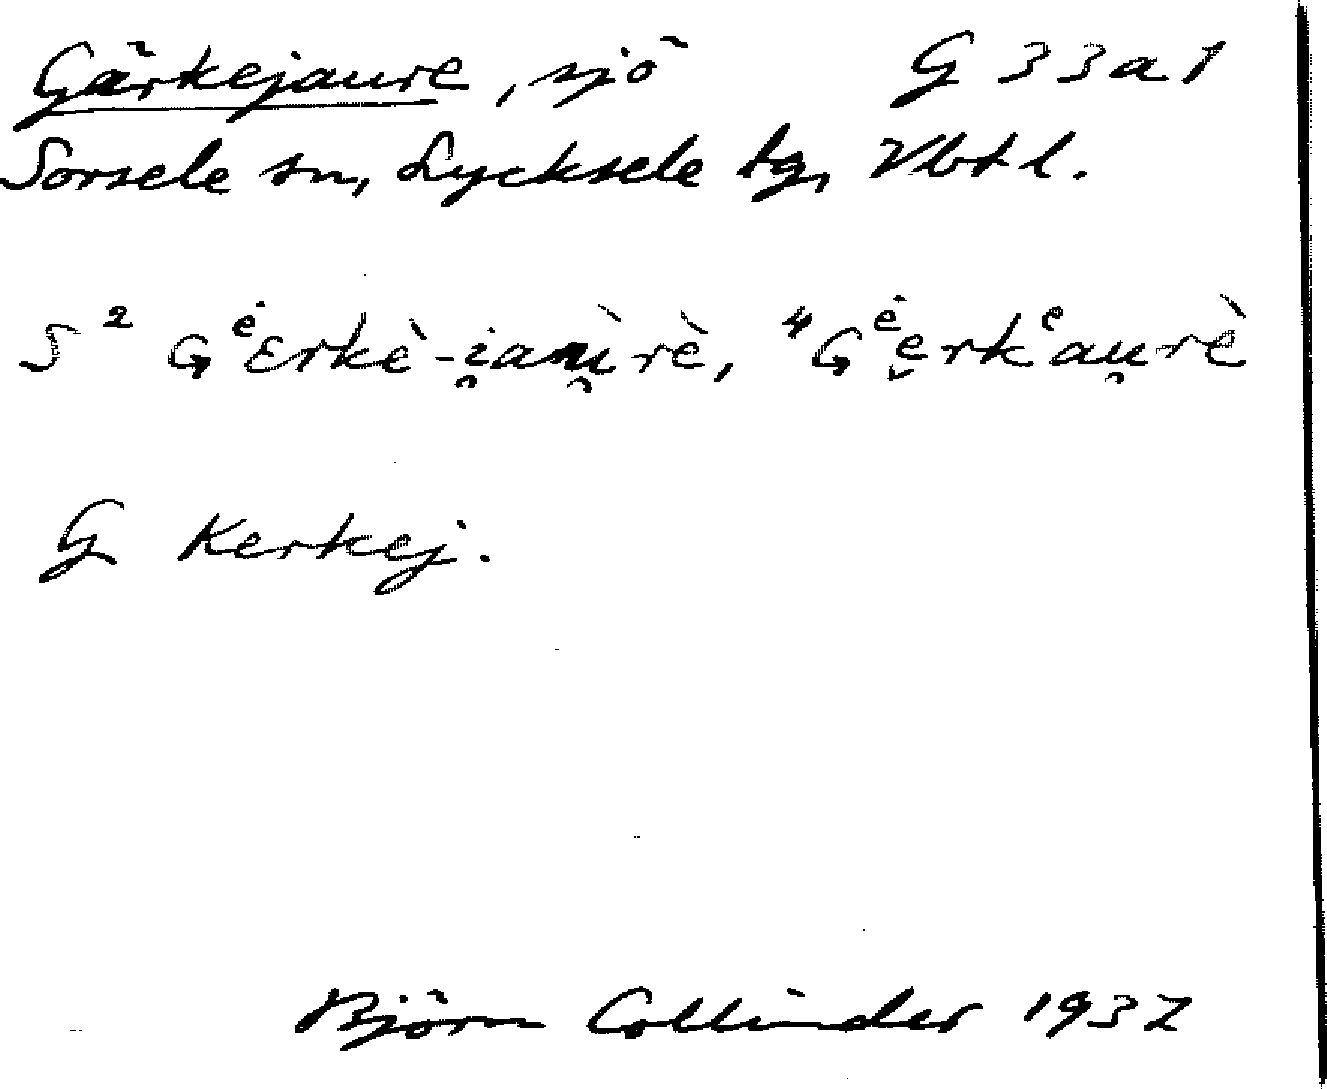 Gärkejaure, sjö G 33a1
Sorsele sn, Lycksele tg, Vbtl.
S ² Gᵉ̇ɛrkè-i̯aù̯rè, ⁴Gᵉ̇e̬rkᵉau̯rè
G Kerkej.
Björn Collinder 1937